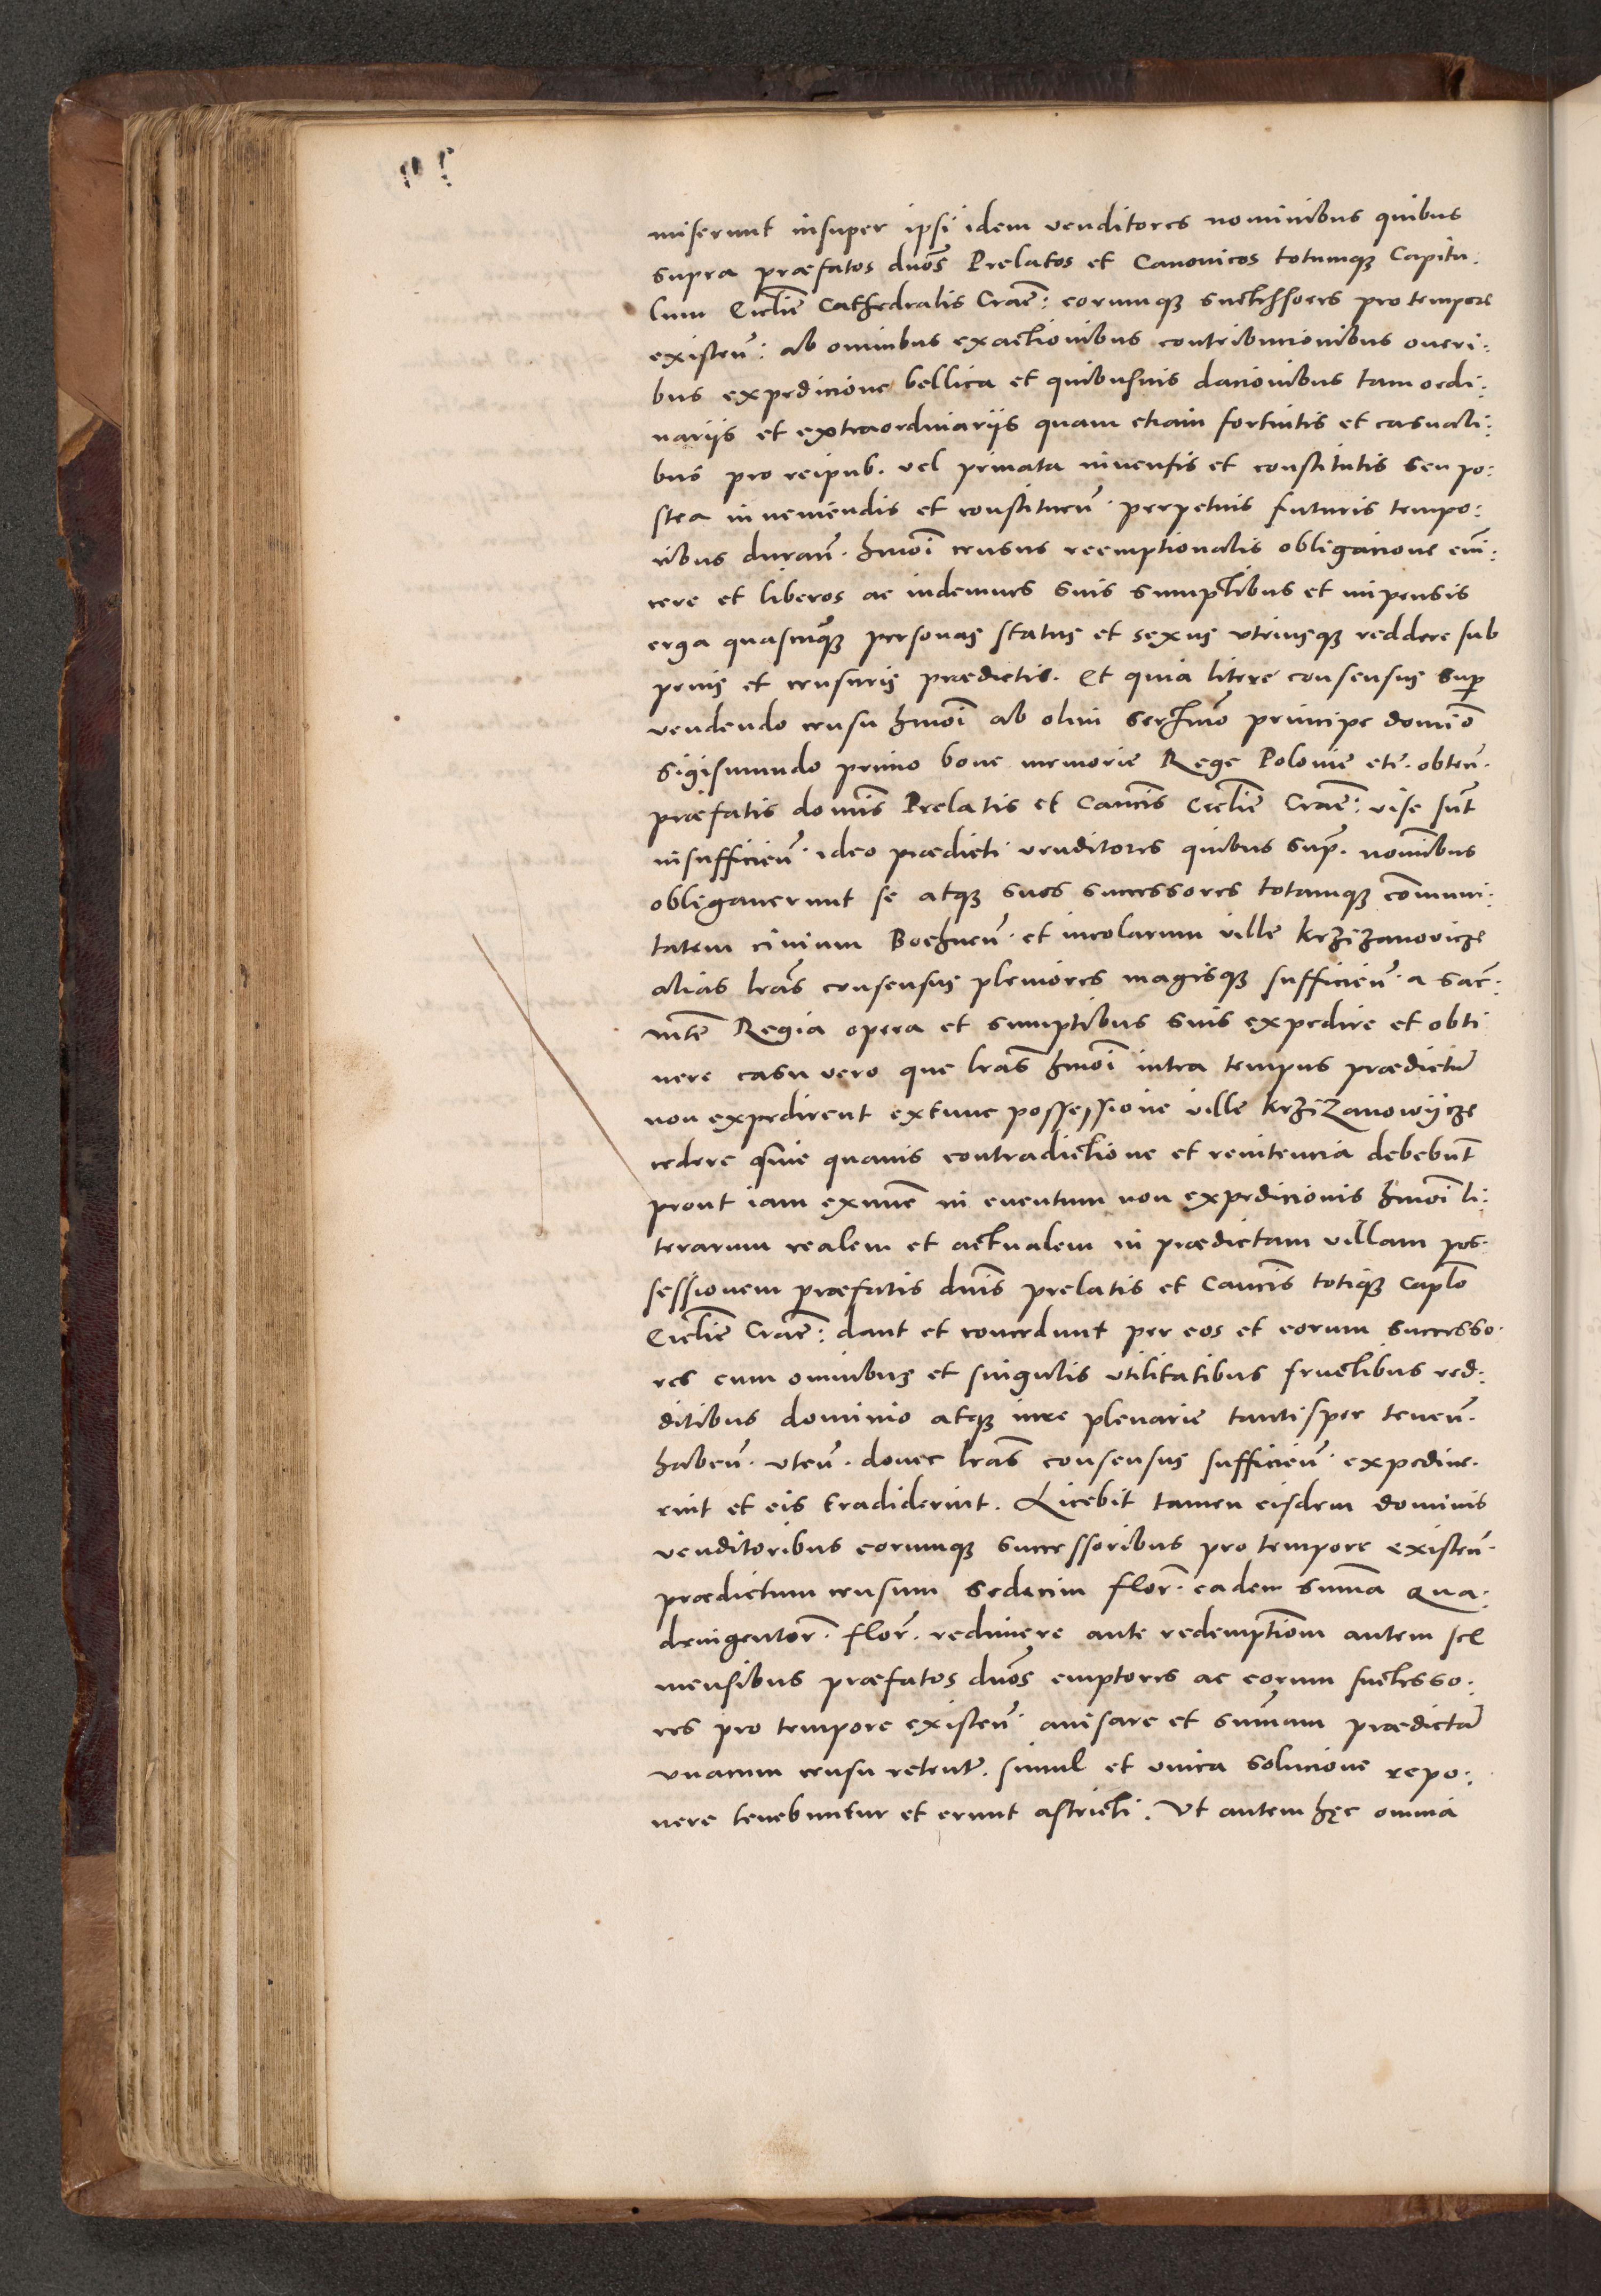 miserunt insuper ipsi idem venditores nominibus quibus
supra præfatos dnos Prelatos et Canonicos totumqꝫ Capitu:
lum Ecclie Cathedralis Crac: eorumqꝫ successores pro tempore
existen: ab omnibus exactionibus contribucionibus oneri:
bus expedicione bellica et quibusuis dacionibus tam ordi:
narijs et extraordinarijs quam etiam fortuitis et casuali:
bus pro reipub. vel priuata inuentis et constitutis seu po:
stea inueniendis et constituen. perpetuis futuris tempo:
ribus duran. hmoi census reemptionalis obligacione eui:
cere et liberos ac indemnes suis sumptibus et impensis
erga quascunqꝫ personas status et sexus vtriusqꝫ reddere sub
penis et censuris prædictis. Et quia litere consensus sup
vendendo censu hmoi ab olim serenmo principe domino
Sigismundo primo bone memorie Rege Polonie etc. obten.
præfatis domis Prelatis et Cancis Ecclie Crac: vise sut
insufficien. ideo prædicti venditores quibus sup. nomibus
obligauerunt se atqꝫ suos successores totamqꝫ comuni:
tatem ciuium Bochnen. et incolarum ville Krzizanovicze
alias lras consensus pleniores magisqꝫ sufficien. a sac.
mte Regia opera et sumptibus suis expedire et obti
nere casu vero quo lras hmoi intra tempus prædictu
non expedirent extunc possessione ville Krzizanowycze
cedere sine quauis contradictione et renitencia debebut
prout iam exnunc in euentum non expedicionis hmoi li:
terarum realem et actualem in prædictam villam pos.
sessionem præfatis dnis prelatis et Cancis totiqꝫ caplo
Ecclie Crac: dant et concedunt per eos et eorum successo.
res cum omnibus et singulis vtilitatibus fructibus red:
ditibus dominio atqꝫ iure plenarie tantisper tenen.
haben. vten. donec lras consensus sufficien. expedive.
rint et eis tradiderint. Licebit tamen eisdem dominis
venditoribus eorumqꝫ successoribus pro tempore existen.
prædictum censum sedecim flor. eadem suma qua:
dringentor. flor. redimere ante redemptiom autem sex
mensibus præfatos dnos emptores ac eorum successo:
res pro tempore existen. auisare et sumam prædicta
vnacum censu retento. simul et vnica solucione repo:
nere tenebuntur et erunt astricti. Vt autem hęc omnia